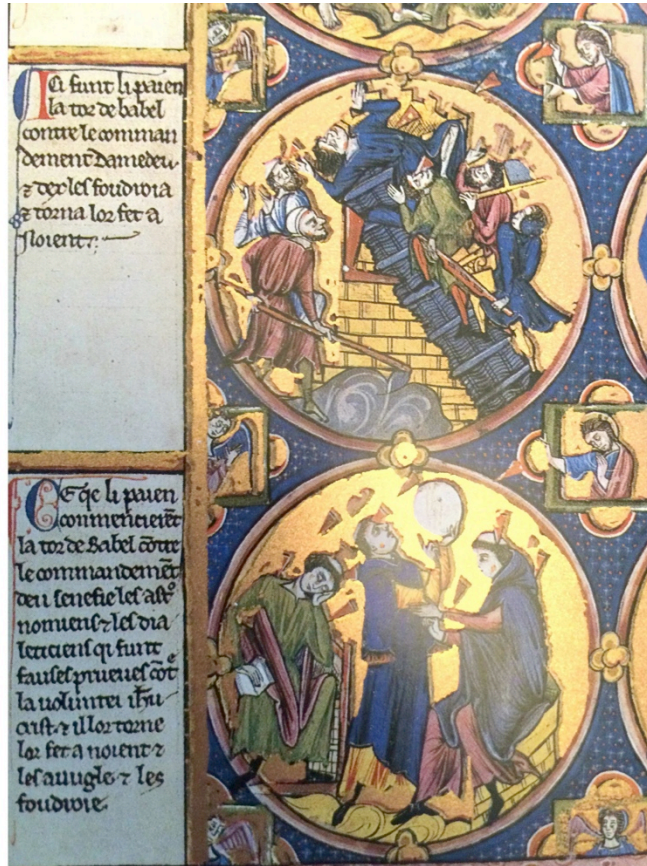 Ici funt li paien
la tor de babel
contre le comman
dement damedeu
⁊ dex les foudroia
⁊ torna lor fet a
noient.
Ce qe li paien
commencierēt
la tor de babel cōtre
le commandemēt
deu senefie les ast᷒o
nomiens ⁊ les dia
leticiens qi funt
fauses prueues cōt᷒e
la uoluntei ih̄u
crist ⁊ il lor torne
lor fet a noient ⁊
les auugle ⁊ les
foudroie.